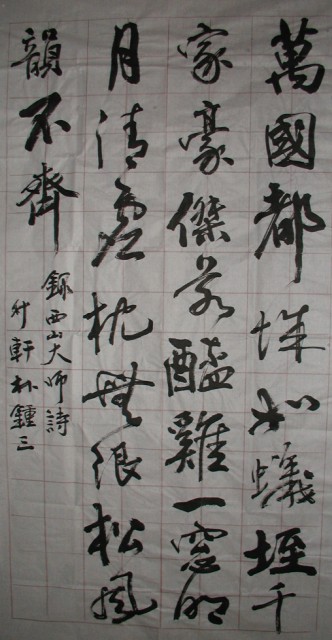 萬國都城如蟻垤千
家豪傑若醯雞一窓明
月清虛枕無限松風
韻不齊
錄西山大師詩
竹軒朴鍾三